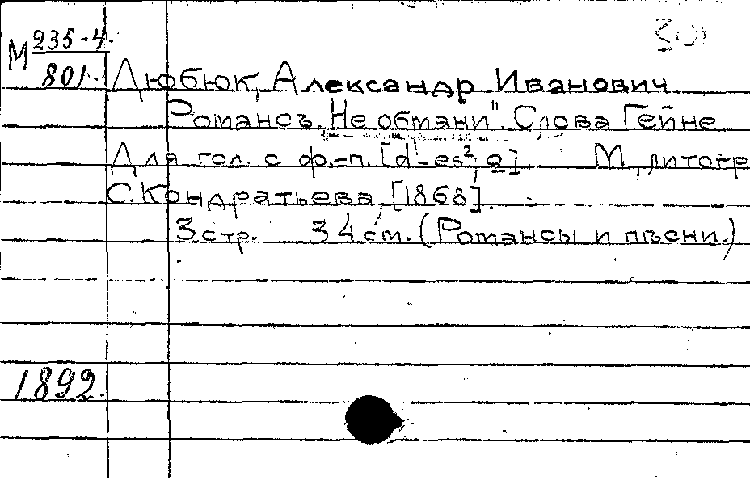 М 235-4
801.
Дюбюк, Александр Иванович
Романсъ „Не обмани". Слова Гейне
Для гол. с ф.-п. [d¹-es², g] М., литогр.
С. Кондратьева, [1868].
3 стр. 34 см. (Романсы и пѣсни.)
1892.